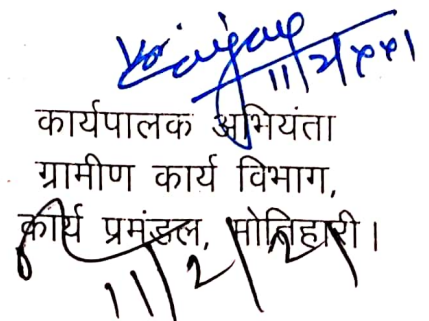 11/2/2021
कार्यपालक अभियंता
ग्रामीण कार्य विभाग,
कार्य प्रमंडल, मोतिहारी।
11/2/21